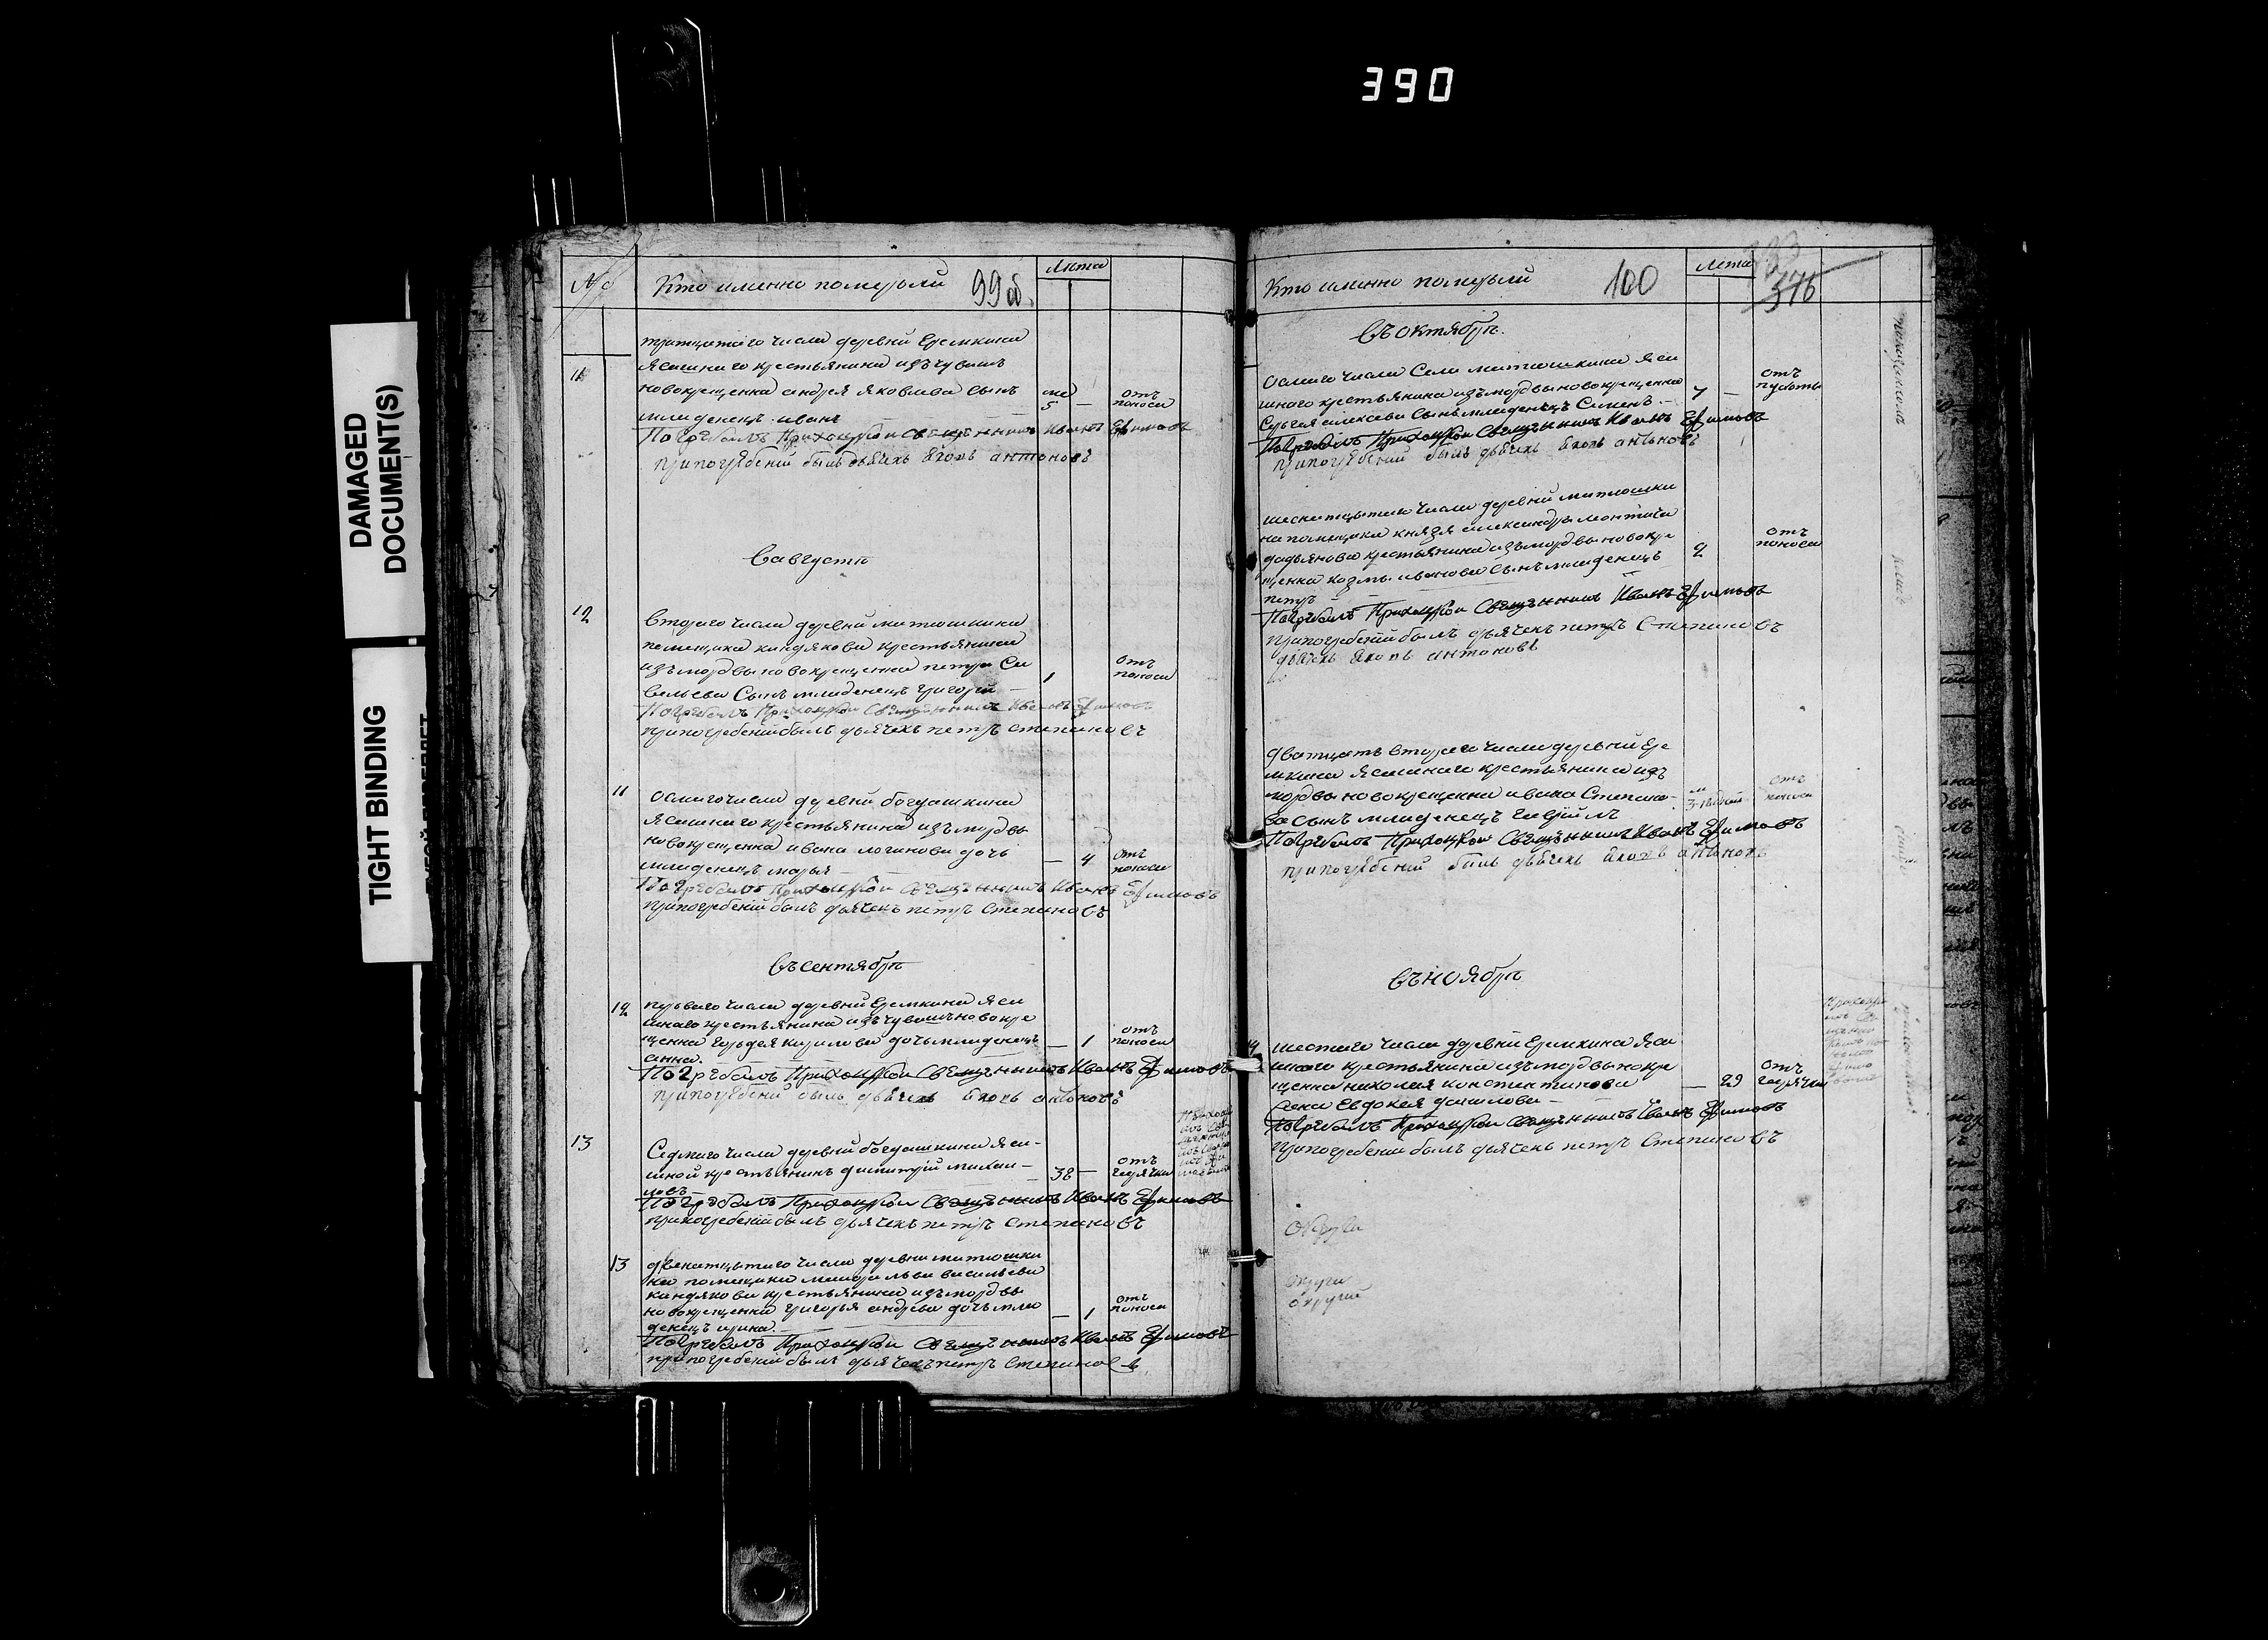 390
DAMAGED
DOCUMENT(S)
TIGHT BINDING
№
Кто именно померьли
99 об.
Лѣта
тритцатого числа деревни Еремкина
11
ясашного крестьянина изъ чувашъ
новокрещенна андрея яковлева сынъ
младенецъ иванъ
ме
5 —
отъ
поноса
Погребалъ Приходской Священникъ Иванъ Ефимовъ
при погребении былъ дьячекъ Яковъ антоновъ
Въ августе
12
второго числа деревни матюшкина
помещика киндякова крестьянина
изъ мордвы новокрещенна петра Са
вельева Сынъ младенецъ григорий —
1
отъ
поноса
Погребалъ Приходской Священникъ Иванъ Ефимовъ
при погребении былъ дьячекъ петръ степановъ
11
осмаго числа деревни богдашкина
ясашного крестьянина изъ мордвы
новокрещенна ивана логинова дочь
младенецъ марья —
— 4
отъ
поноса
Погребалъ Приходской Священникъ Иванъ Ефимовъ
при погребении былъ дьячекъ петръ Степановъ
Въ сентябре
12
перваго числа деревни Еремкина яса
шнаго крестьянина изъ чувашъ новокре
щенна гордея кирилова дочь младенецъ
анна.
— 1
отъ
поноса
Погребалъ Приходской Священникъ Иванъ Ефимовъ
при погребении былъ дьячекъ Яковъ антоновъ
13
Седмаго числа деревни богдашкина яса-
шной крестьянинъ димитрий михаи —
ловъ —
38 —
отъ
горячки
Погребалъ Приходской Священникъ Иванъ Ефимовъ
при погребении былъ дьячекъ петръ Степановъ
13
двенатцатого числа деревни матюшки
на помещика маиора льва васильева
киндякова крестьянина изъ мордвы
новокрещенна григорья андреева дочь мла
денецъ ирина.
— 1
отъ
поноса
Погребалъ Приходской Священникъ Иванъ Ефимовъ
при погребении былъ дьячекъ петръ Степановъ
Кто именно померьли
100
Лета
376
Въ октябре.
осмаго числа Села матюшкина яса
шного крестьянина изъ мордвы новокрещенна
Сергея алексеева Сынъ младенецъ Сименъ —
7 —
отъ
Погребалъ Приходской Священникъ Иванъ Ефимовъ
при погребении былъ дьячекъ Яковъ антоновъ
шеснатцатого числа деревни матюшки
на помещика князя александра
дадьянова крестьянина изъ мордвы новокре
щенна козмы иванова Сынъ младенецъ
петръ
2
отъ
поноса
Погребалъ Приходской Священникъ Иванъ Ефимовъ
при погребении былъ дьячекъ петръ Степановъ
дьячекъ Яковъ антоновъ
дватцать второго числа деревни Ере
мкина ясашнаго крестьянина изъ
мордвы новокрещенна ивана Степано-
ва сынъ младенецъ гаврiилъ
отъ
поноса
Погребалъ Приходской Священникъ Иванъ Ефимовъ
при погребении былъ дьячекъ Яковъ антоновъ
Въ ноябре
шестаго числа деревни Еремкина яса
шнаго крестьянина изъ мордвы нокре
щенна николая константинова
жена Евдокея данилова —
— 29
отъ
горячки
Погребалъ Приходской Священникъ Иванъ Ефимовъ
при погребении былъ дьячекъ петръ Степановъ
Округи
округи
округи